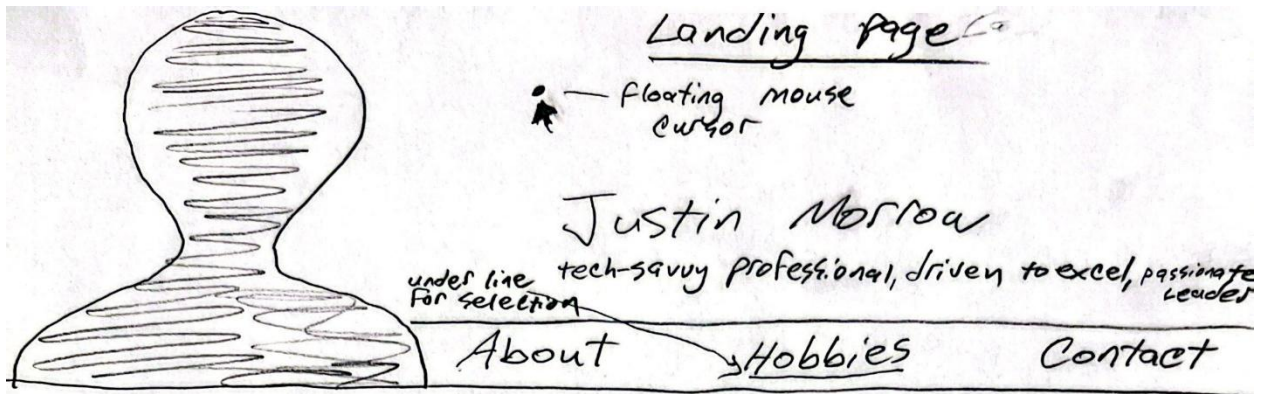 Landing page
floating mouse
cursor
Justin Morrow
tech-savvy professional, driven to excel, passionate
Leader
under line
for selection
About Hobbies Contact